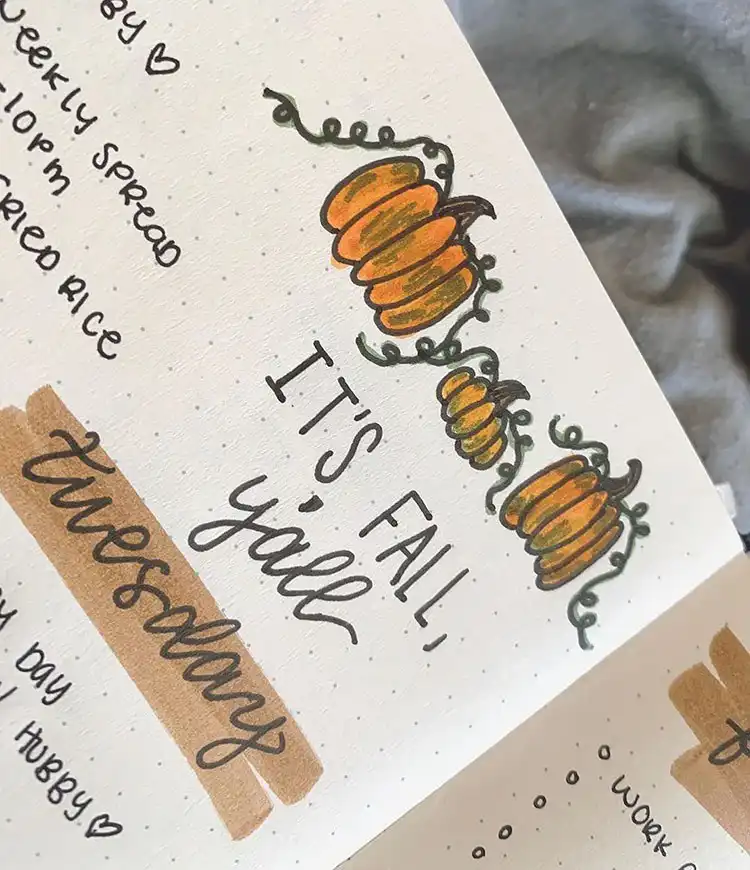 BY ♡
WEEKLY SPREAD
-10PM
FRIED RICE
IT'S FALL,
y'all
tuesday
DAY
HUBBY ♡
WORK